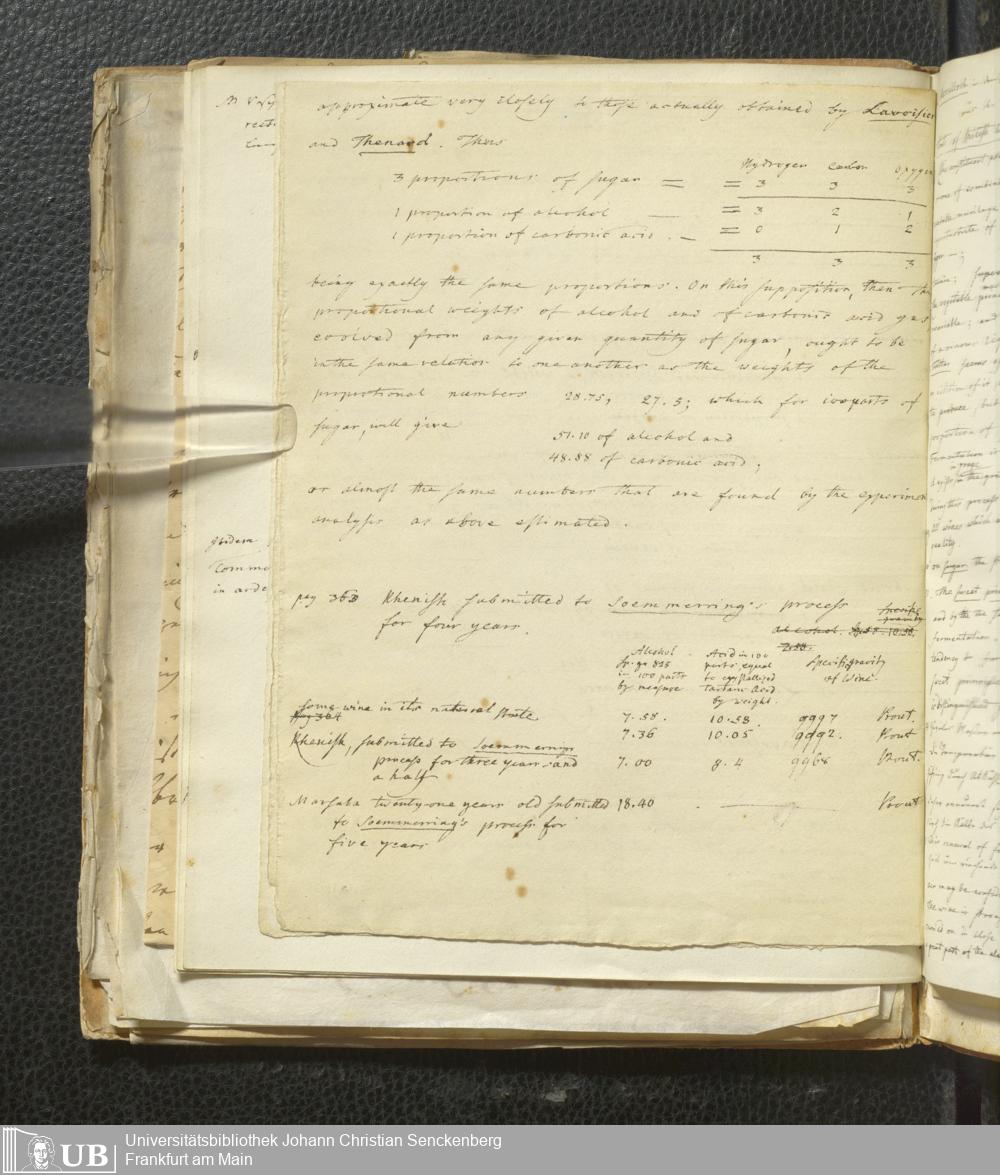 approximate very closely to those actually obtained by Lavoisier
and Thenard. Thus
Hydrogen Carbon Oxygen
3 proportions of sugar = = 3 3 3
1 proportion of alcohol — = 3 2 1
1 proportion of carbonic acid. — = 0 1 2
3 3 3
being exactly the same proportions. On this supposition, then the
proportional weights of alcohol and of carbonic acid gas
evolved from any given quantity of sugar, ought to be
in the same relation to one another as the weights of the
proportional numbers 28.75, 27.5; which for 100 parts of
sugar, will give
51.10 of alcohol and
48.88 of carbonic acid;
or almost the same numbers that are found by the experimen
analysis as above estimated.
pag 363 Rhenish submitted to Soemmerring's process
for four years.
Specific
gravity
alcohol. 10.58.
7.58.
Alcohol Sp. gr 825 in 100 parts by measure
Acid in 100 parts equal to crystallized Tartaric Acid by weight.
Specific gravity of Wine.
Same wine in its natural State 7.58. 10.58. 9997 Prout.
pag 364
Rhenish, submitted to Soemmerrings 7.36 10.05 9992. Prout
process for three years and 7.00 8.4 9968 Prout.
a half
Marsala twenty-one years old submitted 18.40 . — Prout
to Soemmerring's process for
five years
Ibidem
Comme
in orde
UB
Universitätsbibliothek Johann Christian Senckenberg
Frankfurt am Main